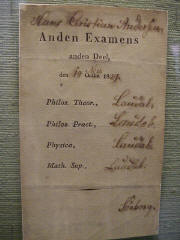 Hans Christian Andersen
Anden Examens
anden Deel,
den 19 Octbr. 1829.
Philos. Theor., Laudab.
Philos. Pract., Laudab.
Physica, Laudab.
Math. Sup., Laudab.